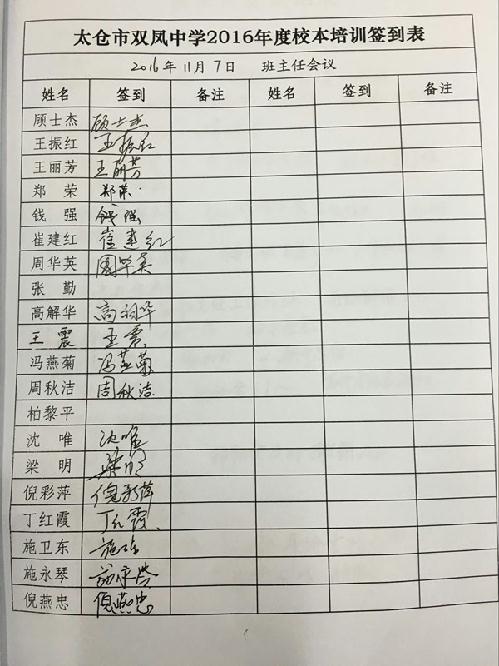 太仓市双凤中学2016年度校本培训签到表
2016年11月7日 班主任会议
姓名 签到 备注 姓名 签到 备注
顾士杰 顾士杰
王振红 王振红
王丽芳 王丽芳
郑荣 郑荣
钱强 钱强
崔建红 崔建红
周华英 周华英
张勤
高解华 高
王震 王震
冯燕菊 冯燕菊
周秋洁 周秋洁
柏黎平
沈唯 沈唯
梁明 梁明
倪彩萍 倪彩萍
丁红霞 丁红霞
施卫东 施
施永琴 施永琴
倪燕忠 倪燕忠